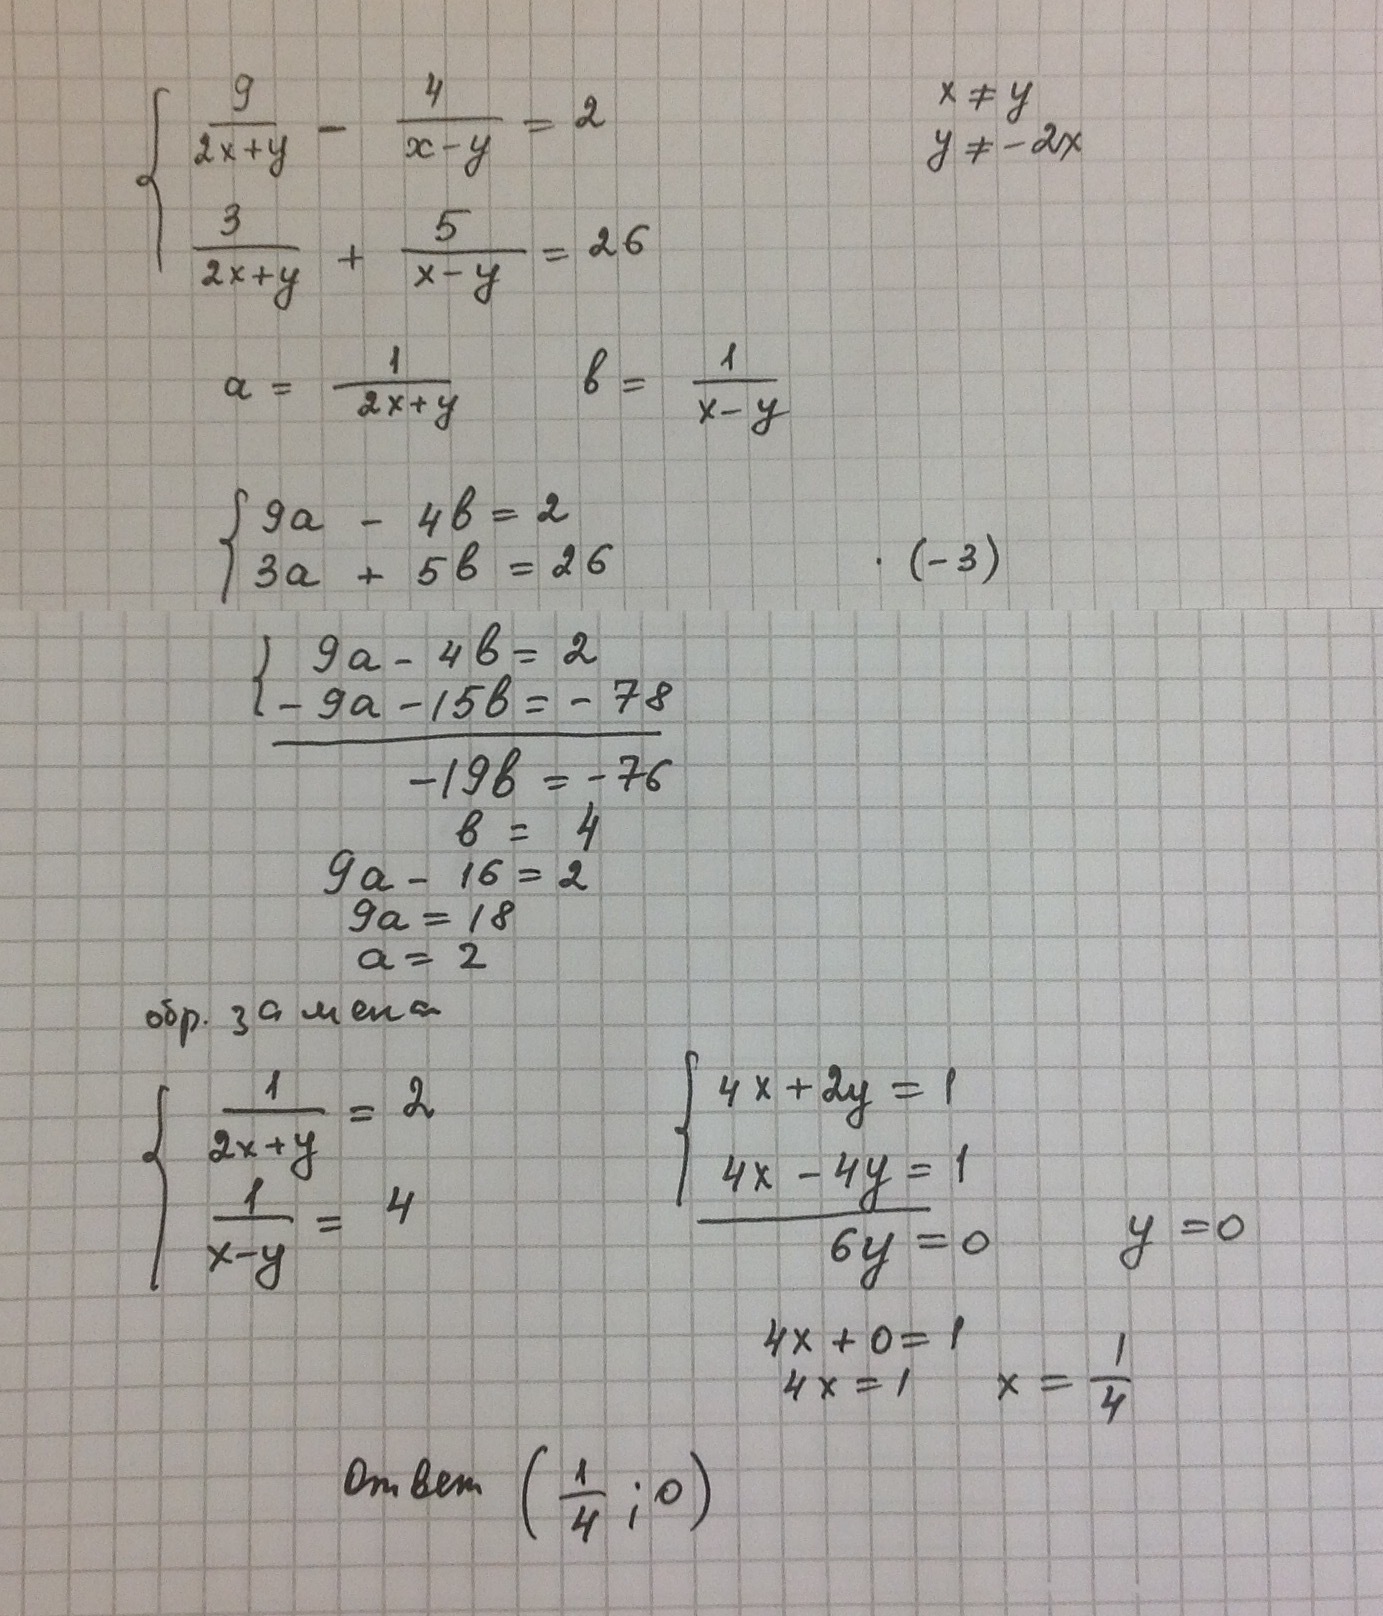 9/(2x+y) - 4/(x-y) = 2 x ≠ y
y ≠ -2x
3/(2x+y) + 5/(x-y) = 26
a = 1/(2x+y) b = 1/(x-y)
9a - 4b = 2
3a + 5b = 26 · (-3)
9a - 4b = 2
-9a - 15b = -78
-19b = -76
b = 4
9a - 16 = 2
9a = 18
a = 2
обр. замена
1/(2x+y) = 2 4x + 2y = 1
1/(x-y) = 4 4x - 4y = 1
6y = 0 y = 0
4x + 0 = 1
4x = 1 x = 1/4
Ответ (1/4 ; 0)